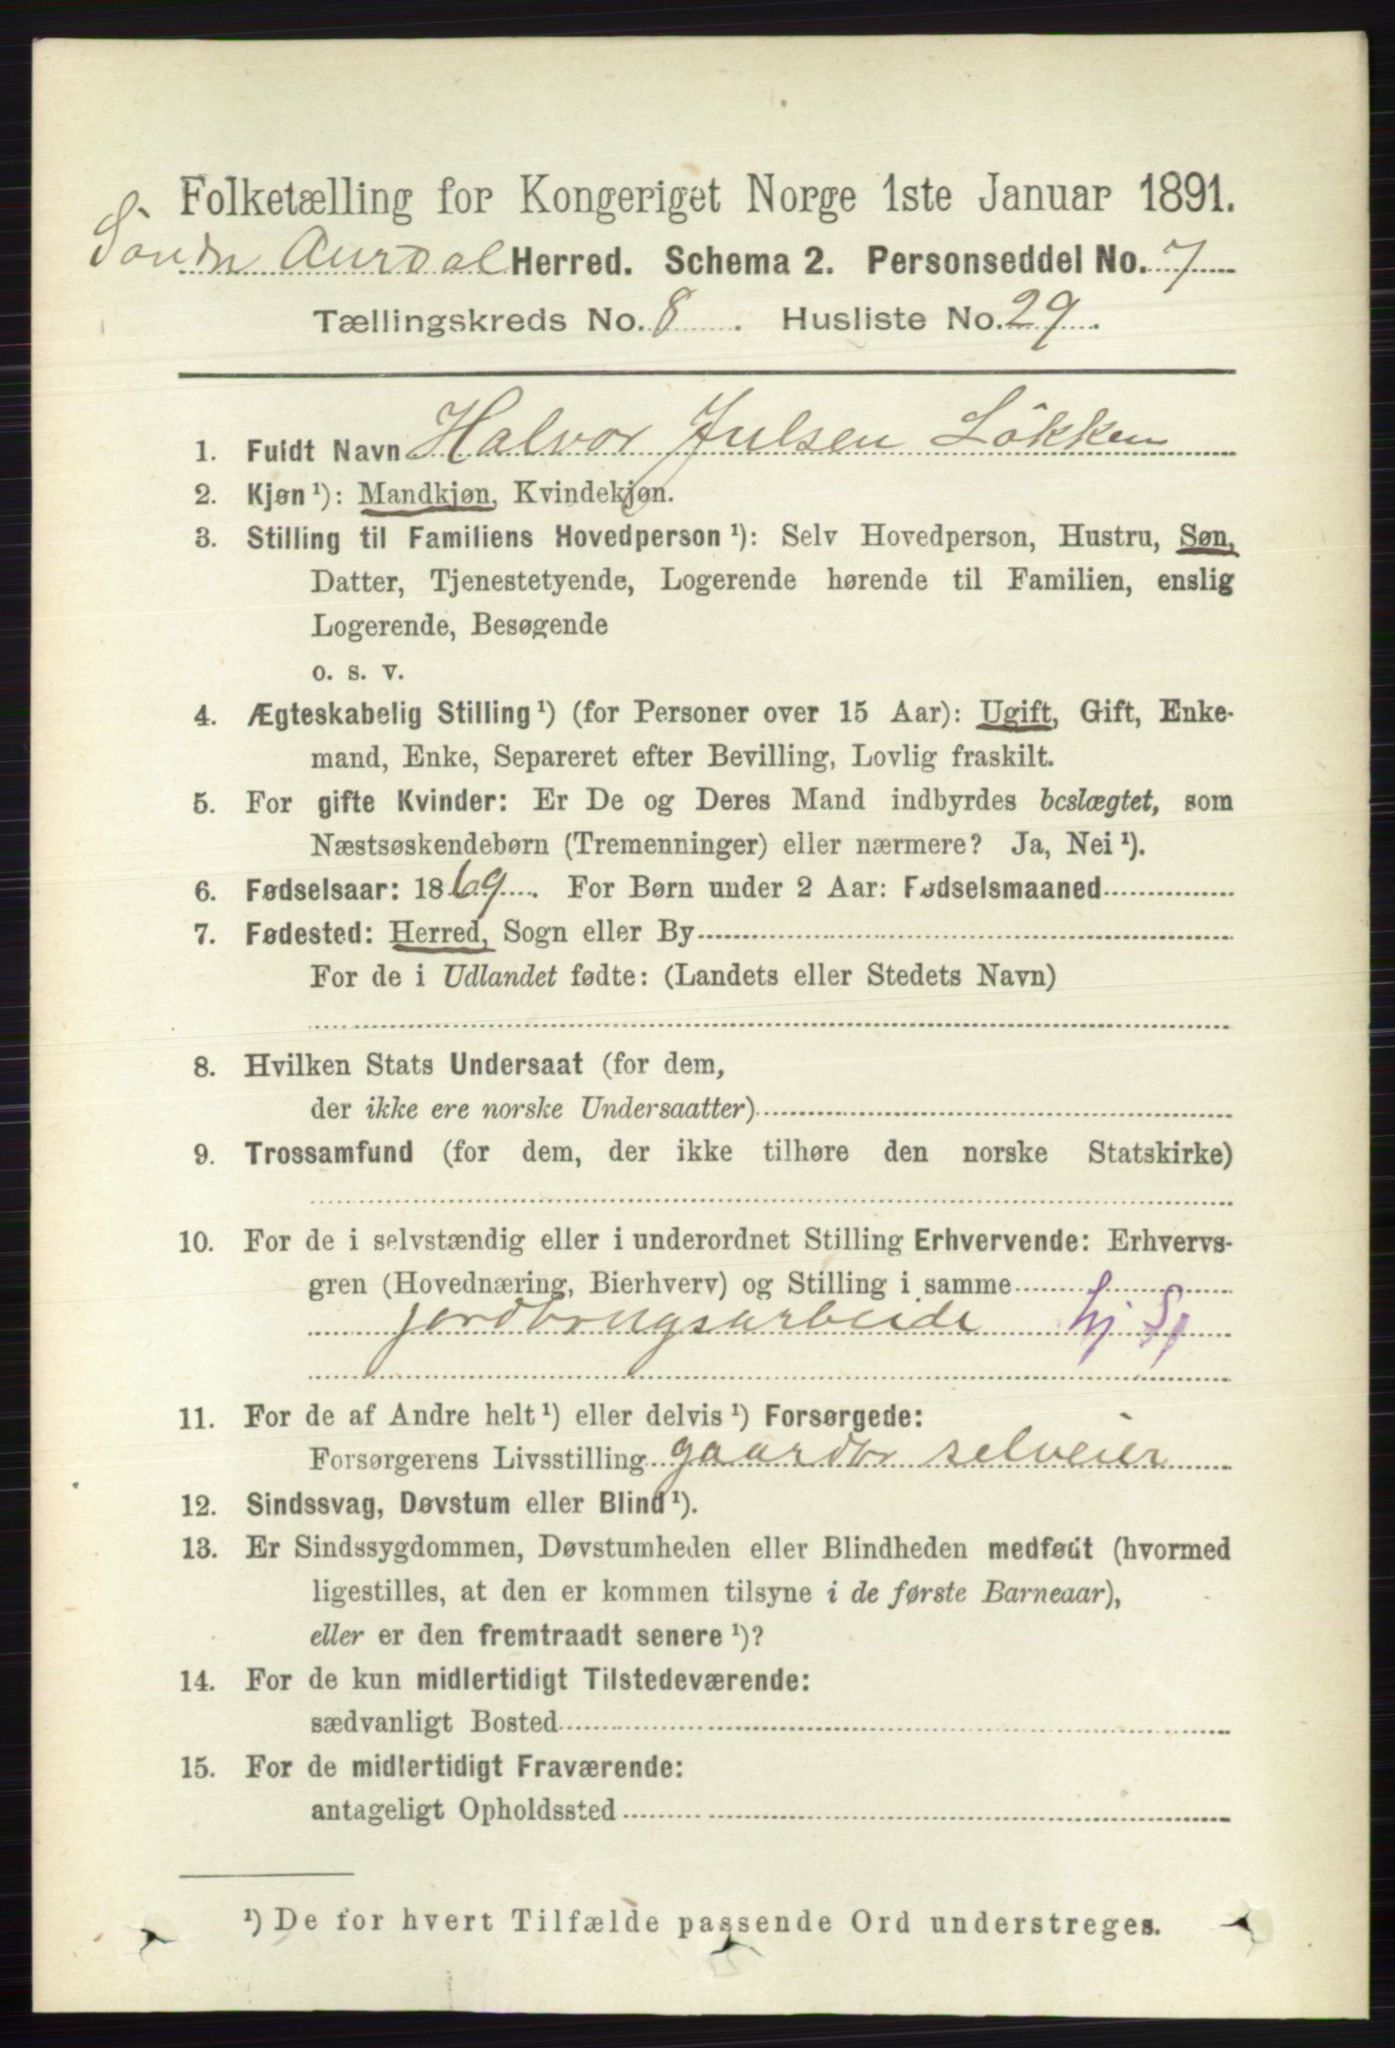 Folketælling for Kongeriget Norge 1ste Januar 1891.
Søndr Aurdal Herred. Schema 2. Personseddel No. 7
Tællingskreds No. 8. Husliste No. 29.
1. Fuldt Navn Halvor Julsen Lökken
2. Kjøn ¹): Mandkjøn, Kvindekjøn.
3. Stilling til Familiens Hovedperson ¹): Selv Hovedperson, Hustru, Søn,
Datter, Tjenestetyende, Logerende hørende til Familien, enslig
Logerende, Besøgende
o. s. v.
4. Ægteskabelig Stilling ¹) (for Personer over 15 Aar): Ugift, Gift, Enke-
mand, Enke, Separeret efter Bevilling, Lovlig fraskilt.
5. For gifte Kvinder: Er De og Deres Mand indbyrdes beslægtet, som
Næstsøskendebørn (Tremenninger) eller nærmere? Ja, Nei ¹).
6. Fødselsaar: 1869. For Børn under 2 Aar: Fødselsmaaned
7. Fødested: Herred, Sogn eller By
For de i Udlandet fødte: (Landets eller Stedets Navn)
8. Hvilken Stats Undersaat (for dem,
der ikke ere norske Undersaatter)
9. Trossamfund (for dem, der ikke tilhøre den norske Statskirke)
10. For de i selvstændig eller i underordnet Stilling Erhvervende: Erhvervs-
gren (Hovednæring, Bierhverv) og Stilling i samme
jordbrugsarbeide hj
11. For de af Andre helt ¹) eller delvis ¹) Forsørgede:
Forsørgerens Livsstilling gaardbr selveier
12. Sindssvag, Døvstum eller Blind ¹).
13. Er Sindssygdommen, Døvstumheden eller Blindheden medfødt (hvormed
ligestilles, at den er kommen tilsyne i de første Barneaar),
eller er den fremtraadt senere ¹)?
14. For de kun midlertidigt Tilstedeværende:
sædvanligt Bosted
15. For de midlertidigt Fraværende:
antageligt Opholdssted
¹) De for hvert Tilfælde passende Ord understreges.